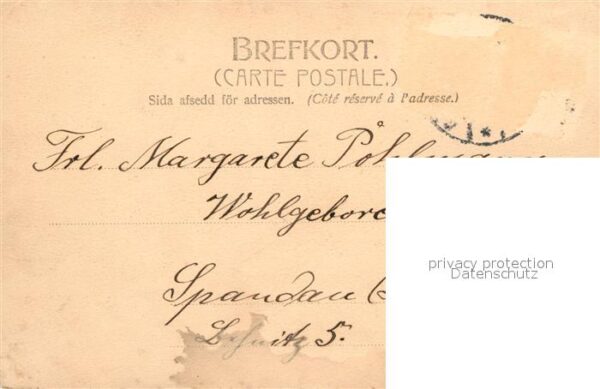 BREFKORT.
(CARTE POSTALE.)
Sida afsedd för adressen. (Côté réservé à l'adresse.)
Frl. Margarete
Wohlgebore
privacy protection
Datenschutz
Spandau
5.